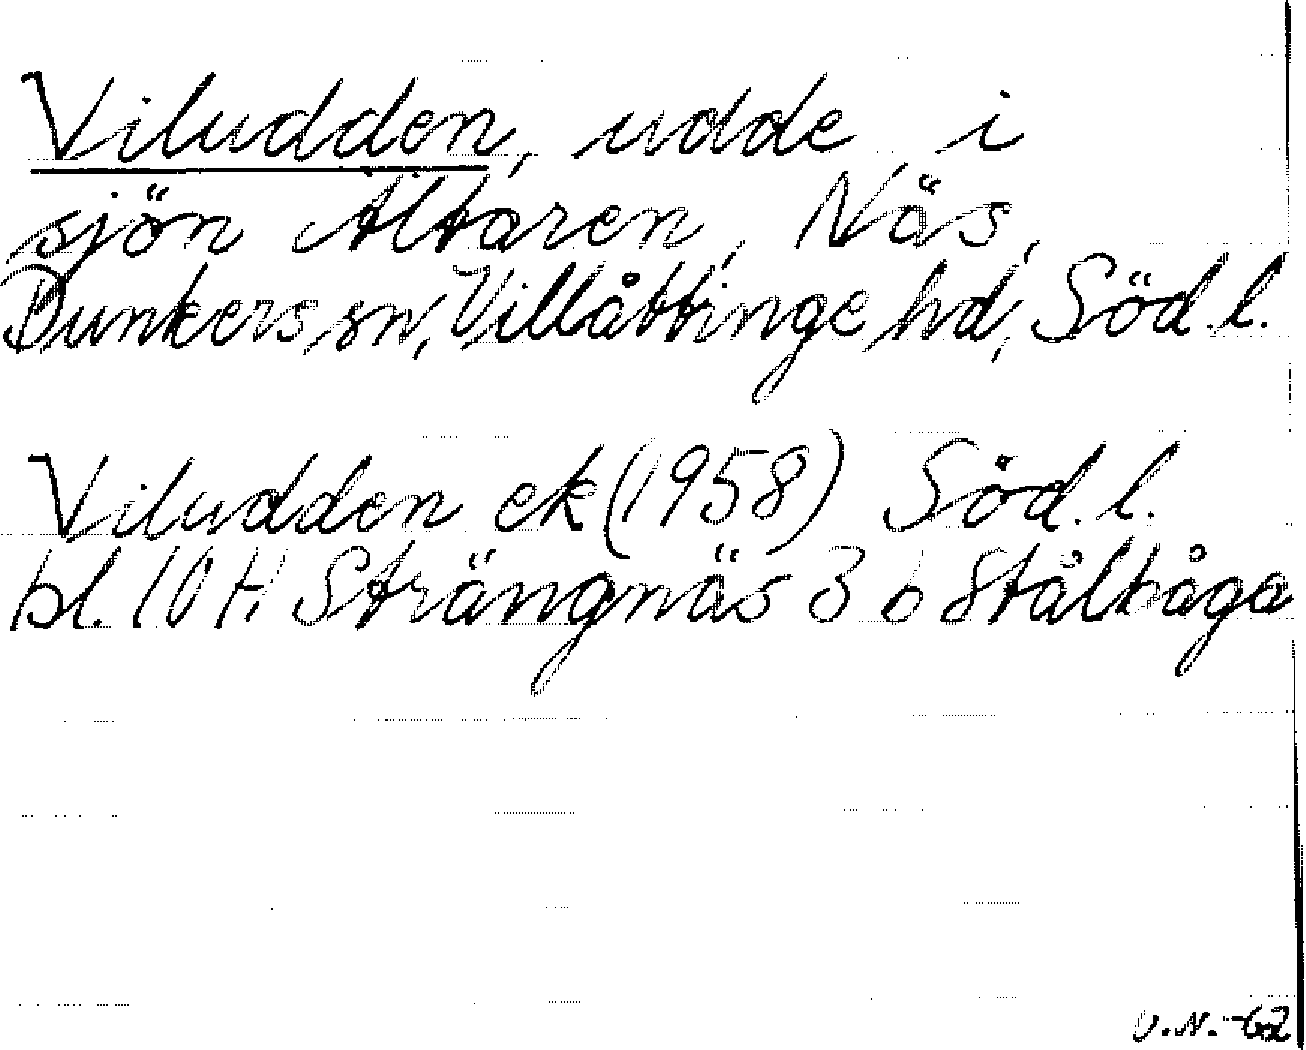 Viludden, udde i
sjön Altaren, Näs,
Dunkers sn, Villåttinge hd, Söd. l.
Viludden ek (1958) Söd. l.
bl. 10 H. Strängnäs 3 b Stålboga
U.N. -62